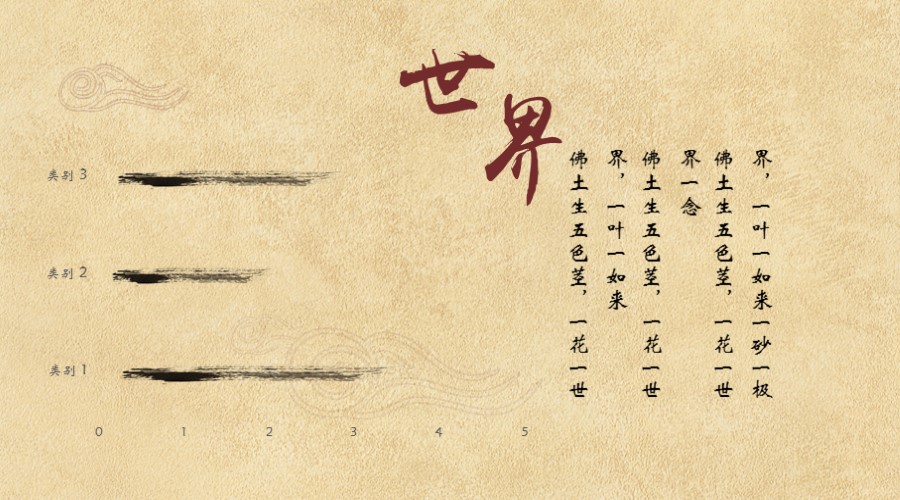 世界
类别 3
类别 2
类别 1
0 1 2 3 4 5
佛土生五色茎，一花一世
界，一叶一如来
佛土生五色茎，一花一世
界一念
佛土生五色茎，一花一世
界，一叶一如来一砂一极